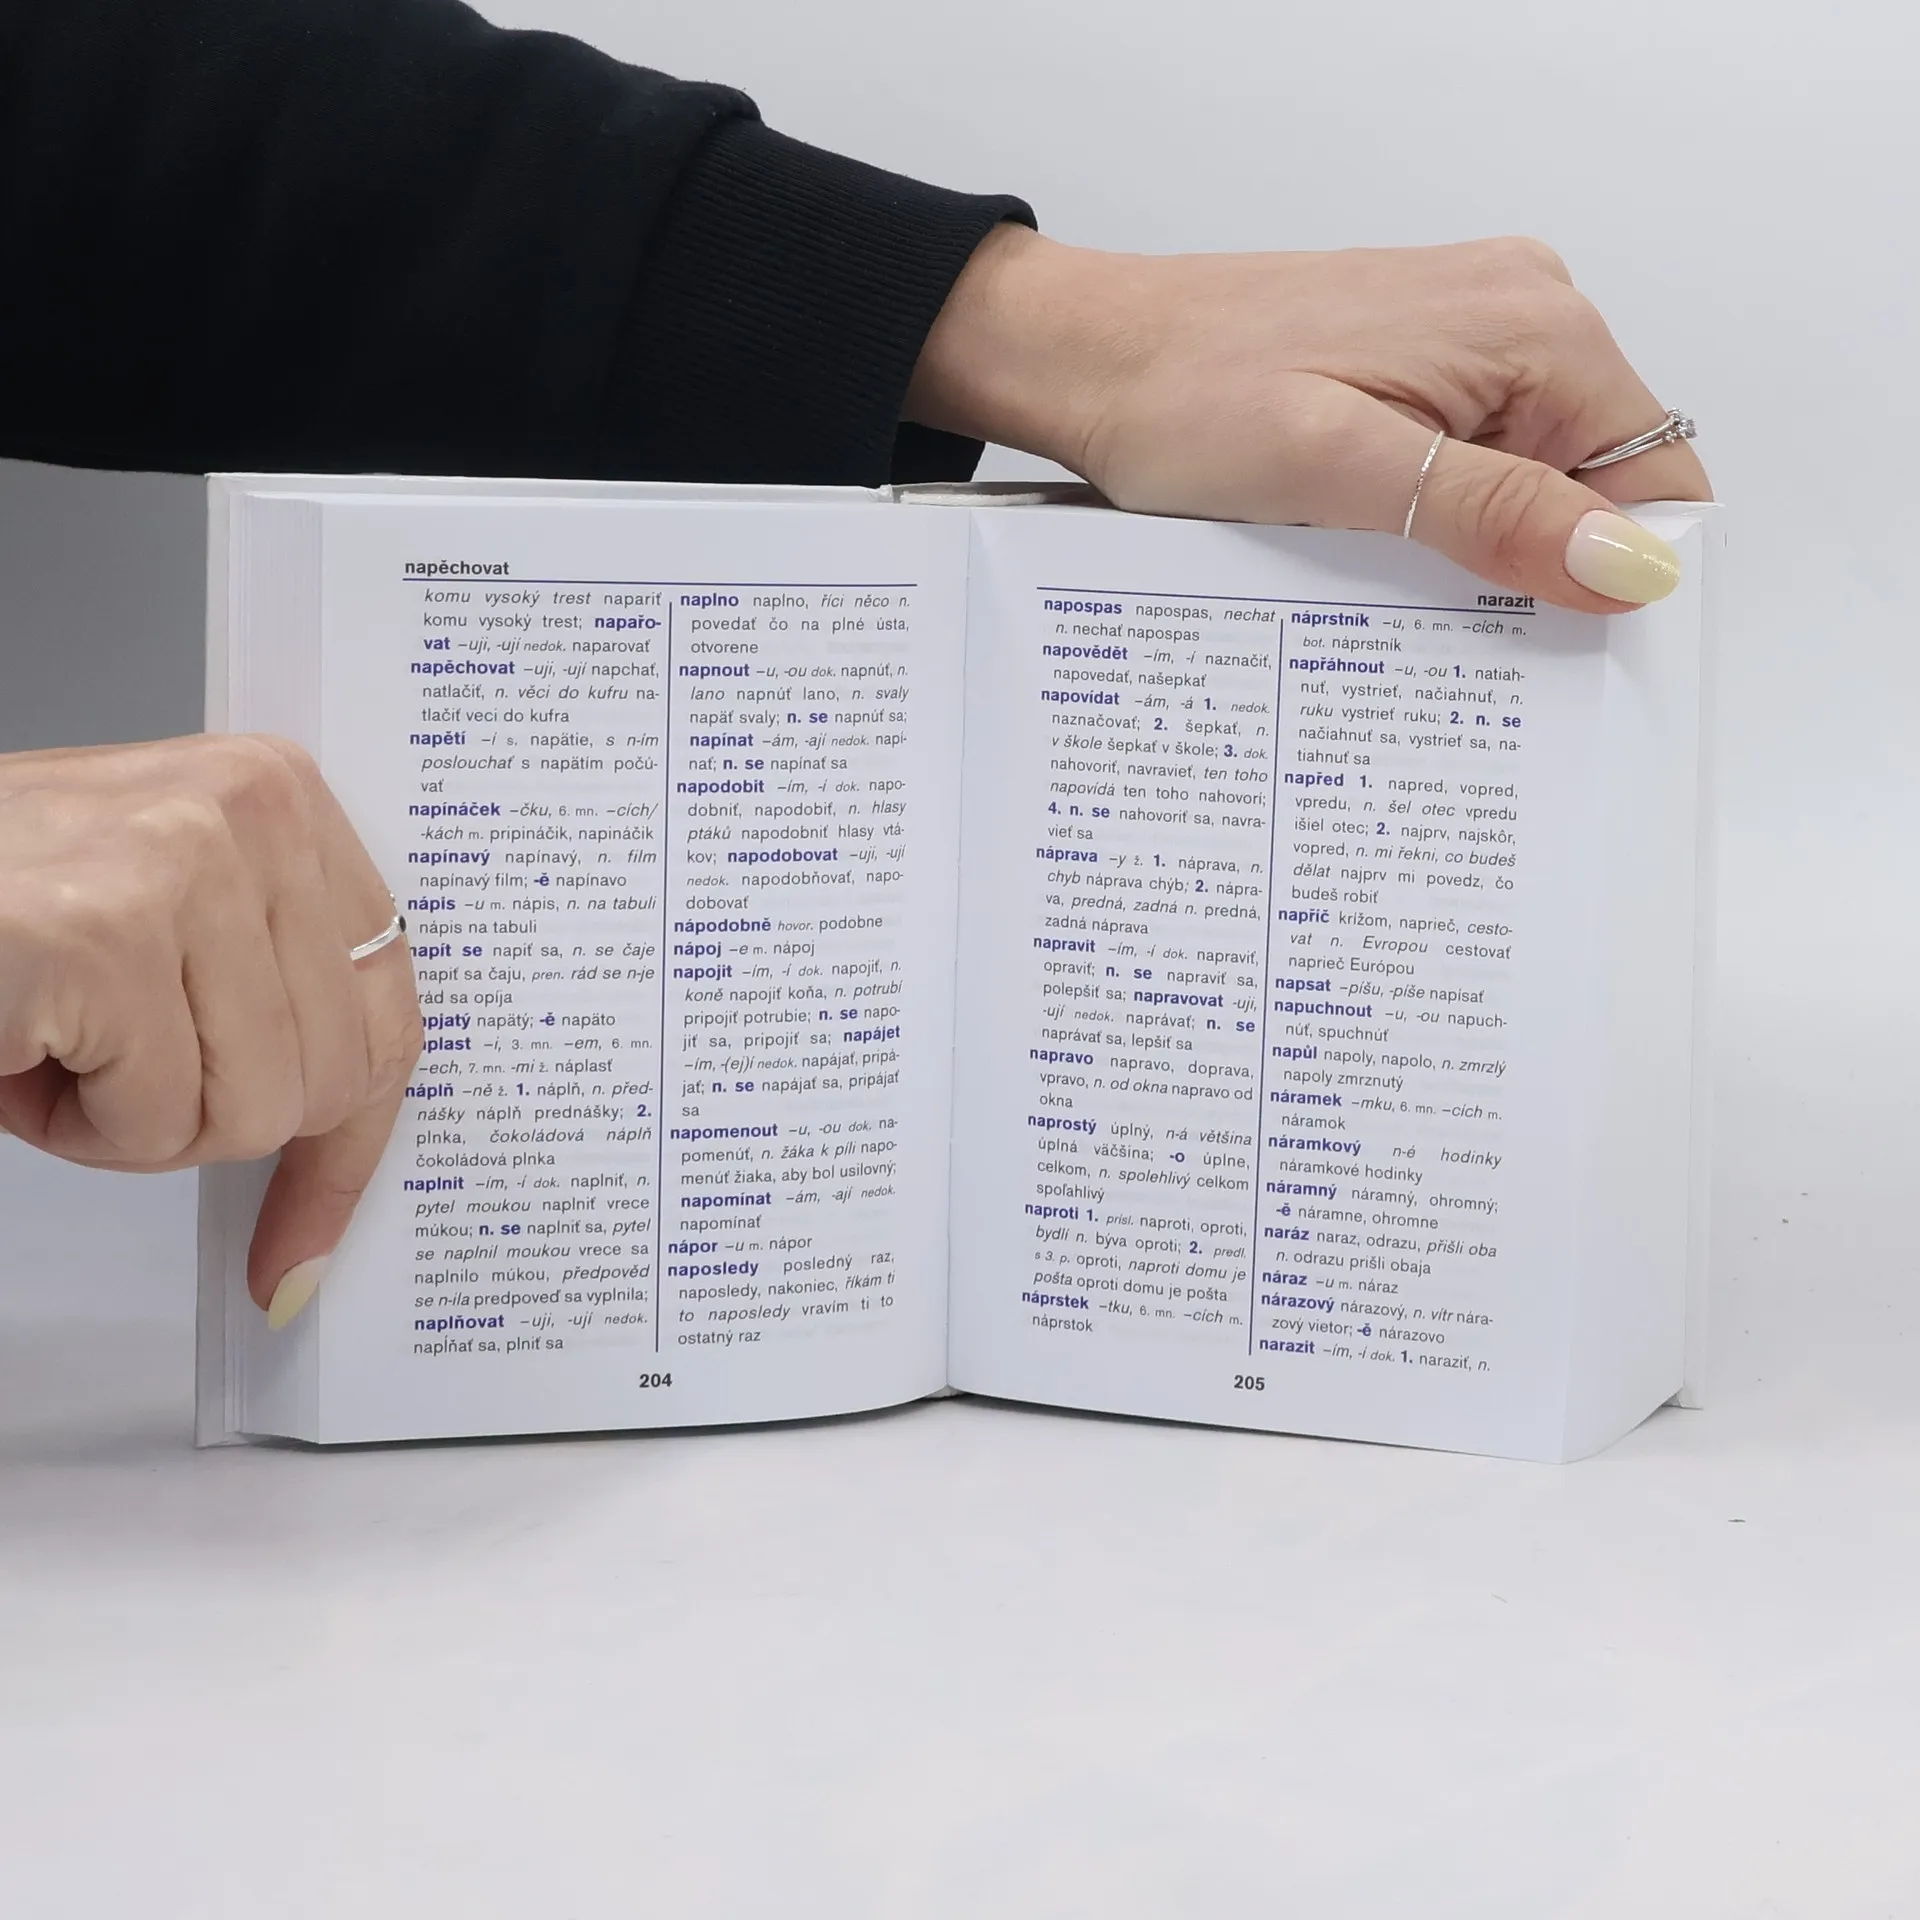 napěchovat
komu vysoký trest napariť
komu vysoký trest; napařo-
vat –uji, -ují nedok. naparovať
napěchovat –uji, -ují napchať,
natlačiť, n. věci do kufru na-
tlačiť veci do kufra
napětí –í s. napätie, s n-ím
poslouchať s napätím počú-
vať
napínáček –čku, 6. mn. –cích/
-kách m. pripináčik, napináčik
napínavý napínavý, n. film
napínavý film; -ě napínavo
nápis –u m. nápis, n. na tabuli
nápis na tabuli
napít se napiť sa, n. se čaje
napiť sa čaju, pren. rád se n-je
rád sa opíja
napätý; -ě napäto
–i, 3. mn. –em, 6. mn.
–ech, 7. mn. -mi ž. náplasť
náplň –ně ž. 1. náplň, n. před-
nášky náplň prednášky; 2.
plnka, čokoládová náplň
čokoládová plnka
naplnit –ím, -í dok. naplniť, n.
pytel moukou naplniť vrece
múkou; n. se naplniť sa, pytel
se naplnil moukou vrece sa
naplnilo múkou, předpověd
se n-ila predpoveď sa vyplnila;
naplňovat –uji, -ují nedok.
napĺňať sa, plniť sa
naplno naplno, říci něco n.
povedať čo na plné ústa,
otvorene
napnout –u, -ou dok. napnúť, n.
lano napnúť lano, n. svaly
napäť svaly; n. se napnúť sa;
napínat –ám, -ají nedok. napí-
nať; n. se napínať sa
napodobit –ím, -í dok. napo-
dobniť, napodobiť, n. hlasy
ptáků napodobniť hlasy vtá-
kov; napodobovat –uji, -ují
nedok. napodobňovať, napo-
dobovať
nápodobně hovor. podobne
nápoj –e m. nápoj
napojit –ím, -í dok. napojiť, n.
koně napojiť koňa, n. potrubí
pripojiť potrubie; n. se napo-
jiť sa, pripojiť sa; napájet
–ím, -(ej)í nedok. napájať, pripá-
jať; n. se napájať sa, pripájať
sa
napomenout –u, -ou dok. na-
pomenúť, n. žáka k píli napo-
menúť žiaka, aby bol usilovný;
napomínat –ám, -ají nedok.
napomínať
nápor –u m. nápor
naposledy posledný raz,
naposledy, nakoniec, říkám ti
to naposledy vravím ti to
ostatný raz
204
narazit
napospas napospas, nechat
n. nechať napospas
napovědět –ím, -í naznačiť,
napovedať, našepkať
napovídat –ám, -á 1. nedok.
naznačovať; 2. šepkať, n.
v škole šepkať v škole; 3. dok.
nahovoriť, navravieť, ten toho
napovídá ten toho nahovorí;
4. n. se nahovoriť sa, navra-
vieť sa
náprava –y ž. 1. náprava, n.
chyb náprava chýb; 2. nápra-
va, predná, zadná n. predná,
zadná náprava
napravit –ím, -í dok. napraviť,
opraviť; n. se napraviť sa,
polepšiť sa; napravovat -uji,
-ují nedok. naprávať; n. se
naprávať sa, lepšiť sa
napravo napravo, doprava,
vpravo, n. od okna napravo od
okna
naprostý úplný, n-á většina
úplná väčšina; -o úplne,
celkom, n. spolehlivý celkom
spoľahlivý
naproti 1. prísl. naproti, oproti,
bydlí n. býva oproti; 2. predl.
s 3. p. oproti, naproti domu je
pošta oproti domu je pošta
náprstek –tku, 6. mn. –cích m.
náprstok
náprstník –u, 6. mn. –cích m.
bot. náprstník
napřáhnout –u, -ou 1. natiah-
nuť, vystrieť, načiahnuť, n.
ruku vystrieť ruku; 2. n. se
načiahnuť sa, vystrieť sa, na-
tiahnuť sa
napřed 1. napred, vopred,
vpredu, n. šel otec vpredu
išiel otec; 2. najprv, najskôr,
vopred, n. mi řekni, co budeš
dělat najprv mi povedz, čo
budeš robiť
napříč krížom, naprieč, cesto-
vat n. Evropou cestovať
naprieč Európou
napsat –píšu, -píše napísať
napuchnout –u, -ou napuch-
núť, spuchnúť
napůl napoly, napolo, n. zmrzlý
napoly zmrznutý
náramek –mku, 6. mn. –cích m.
náramok
náramkový n-é hodinky
náramkové hodinky
náramný náramný, ohromný;
-ě náramne, ohromne
naráz naraz, odrazu, přišli oba
n. odrazu prišli obaja
náraz –u m. náraz
nárazový nárazový, n. vítr nára-
zový vietor; -ě nárazovo
narazit –ím, -í dok. 1. naraziť, n.
205